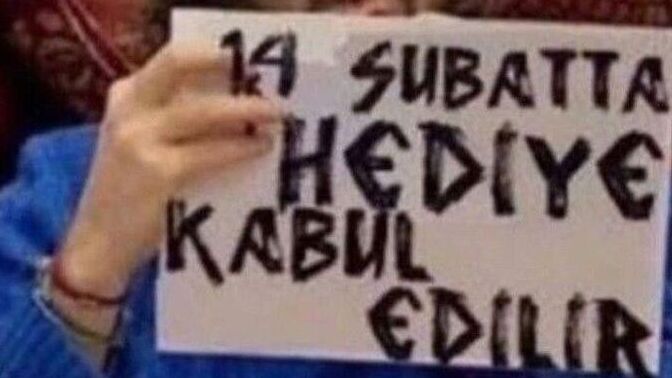 14 SUBATTA
HEDIYE
KABUL
EDILIR